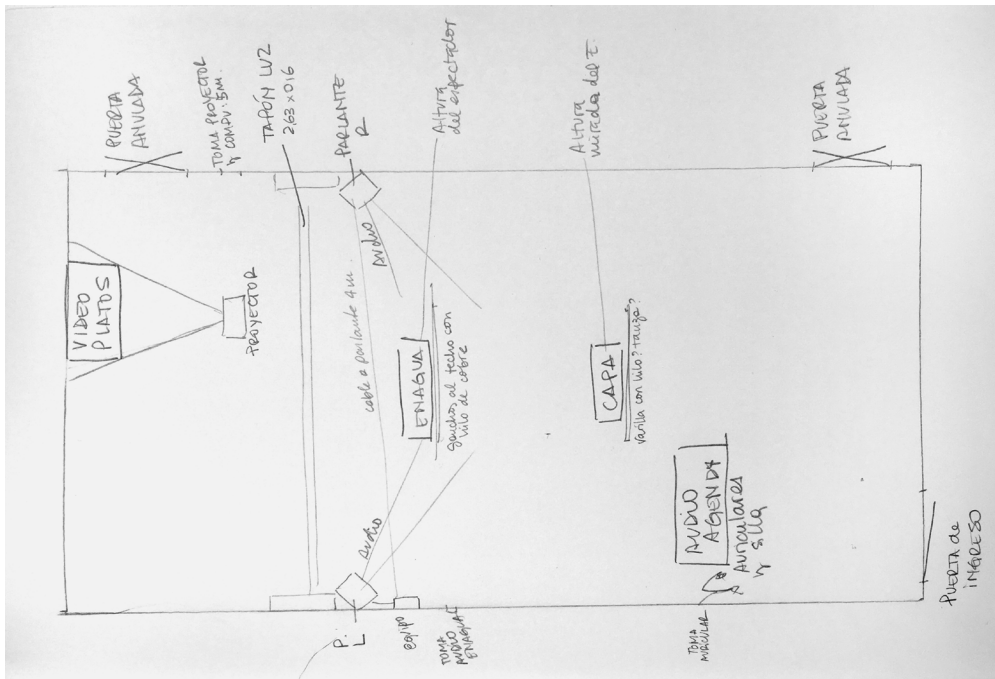 PUERTA
ANULADA
TOMA PROYECTOR
y COMPU: 5M.
TAPÓN LUZ
2,63 x 0,16
PARLANTE
R
Altura
del espectador
Altura
mirada del E.
PUERTA
ANULADA
VIDEO
PLATOS
PROYECTOR
AUDIO
cable a parlante 4m.
ENAGUA
ganchos al techo con
hilo de cobre
CAPA
varilla con hilo? tanza?
AUDIO
AUDIO
AGENDA
Auriculares
y silla
P.
L
EQUIPO
TOMA
AUDIO
ENAGUA
TOMA
AURICULAR
PUERTA de
INGRESO